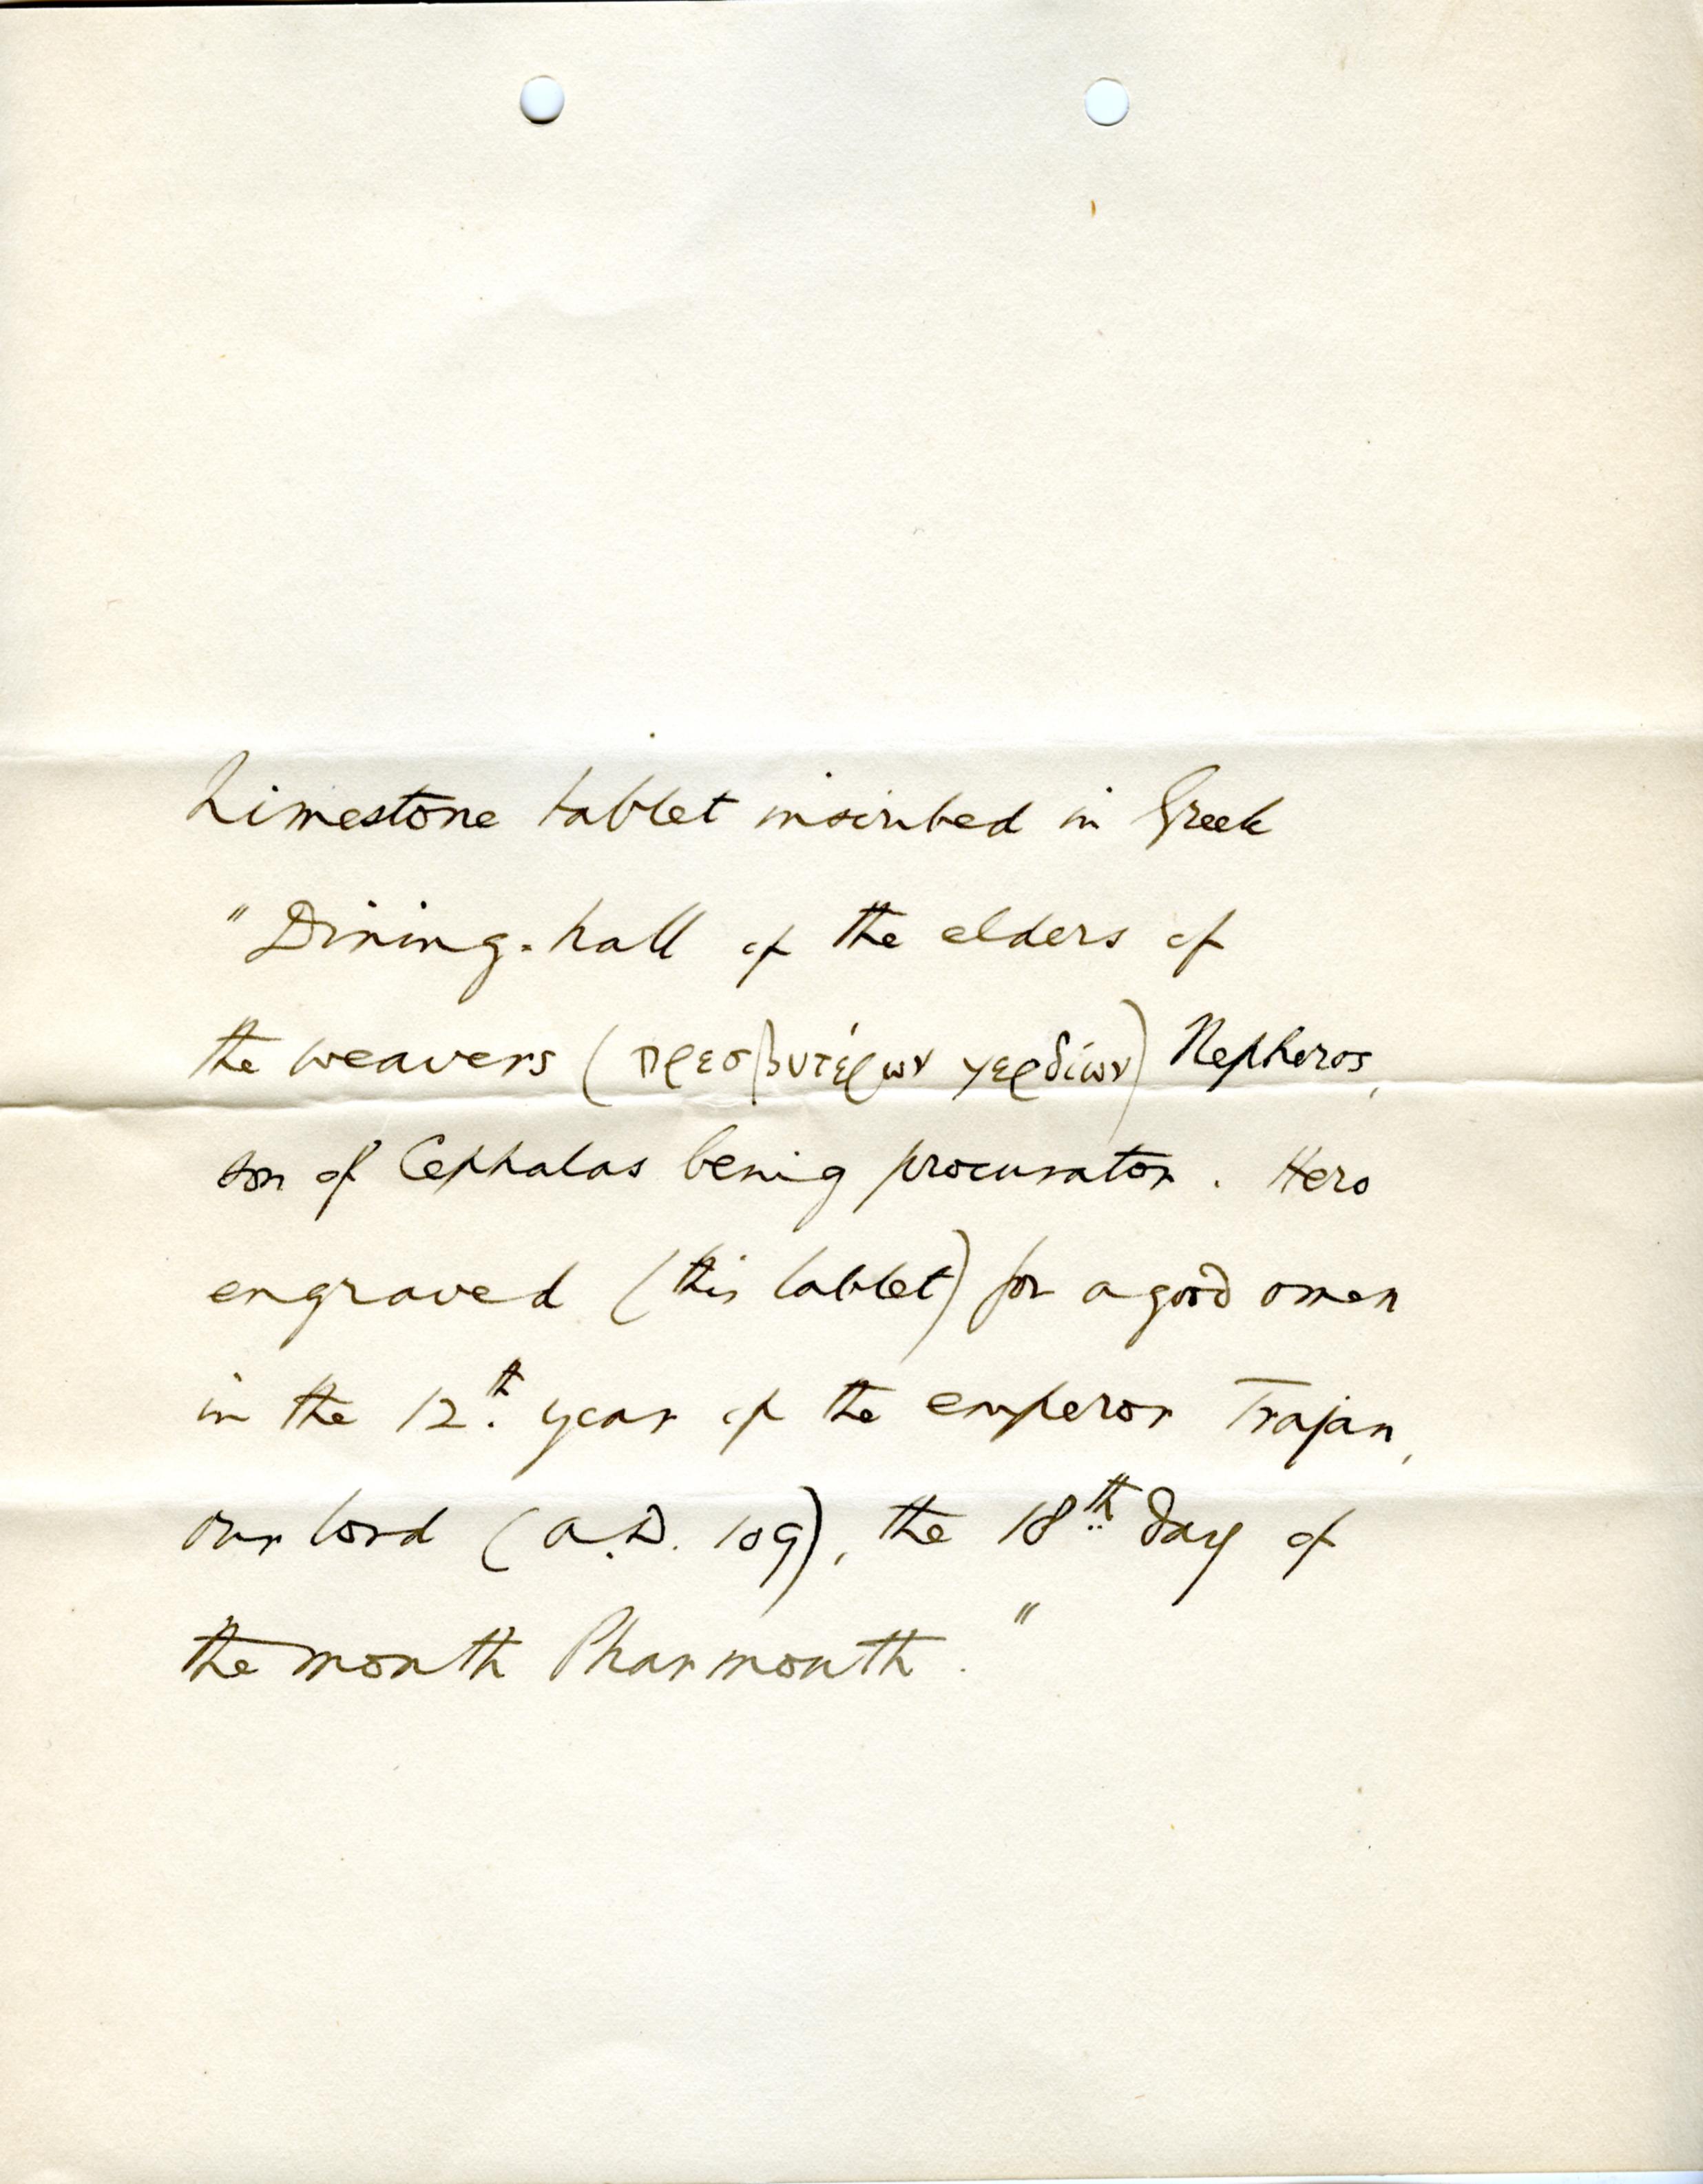 Limestone tablet inscribed in Greek
"Dining-hall of the elders of
the weavers (πρεσβυτέρων γερδίων) Nepheros,
son of Cephalas being procurator. Hero
engraved (this tablet) for a good omen
in the 12th year of the emperor Trajan,
our lord (A.D. 109), the 18th day of
the month Pharmouth."